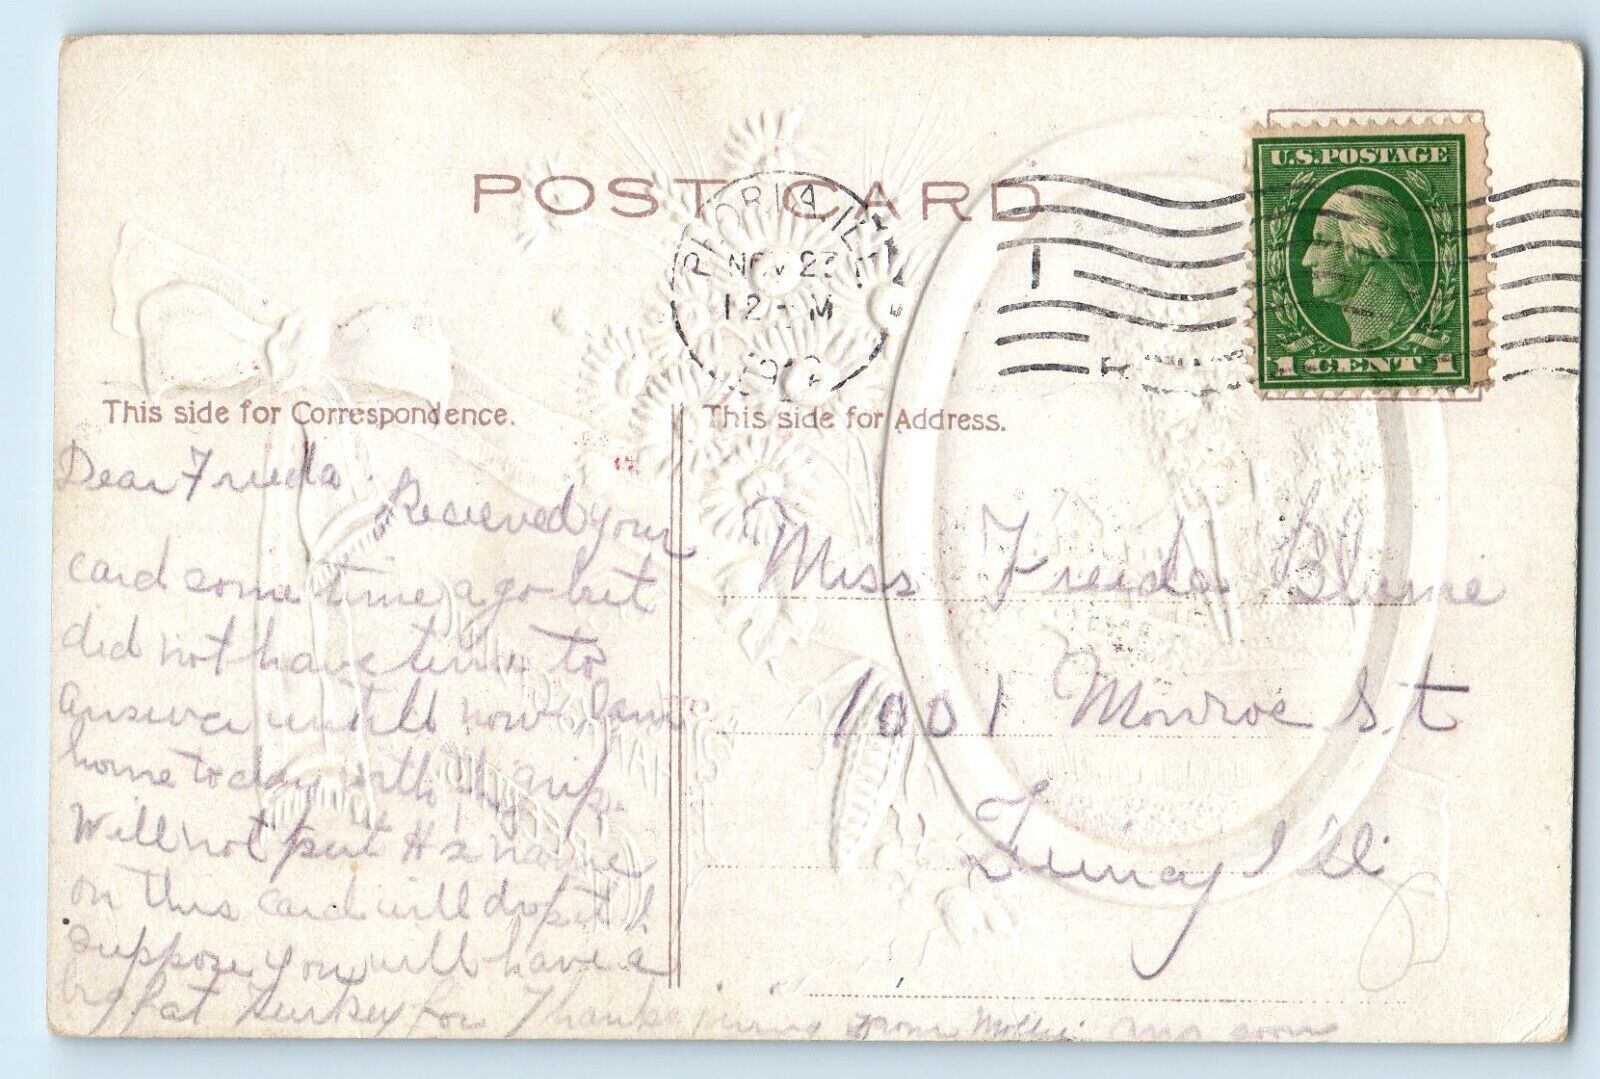 POST CARD
PEORIA, ILL
NOV 23
12 M
U.S. POSTAGE
1 CENT 1
This side for Correspondence.
This side for Address.
Dear Frieda
Recieved your
card some time ago but
did not have time to
answer untill now I am
home today with the grip.
Will not put H z name
on this card will drop it I
suppose you will have a
big fat turkey for Thanksgiving from Molly. Ans soon
Miss Freida Blume
1001 Monroe St
Quincy Ill